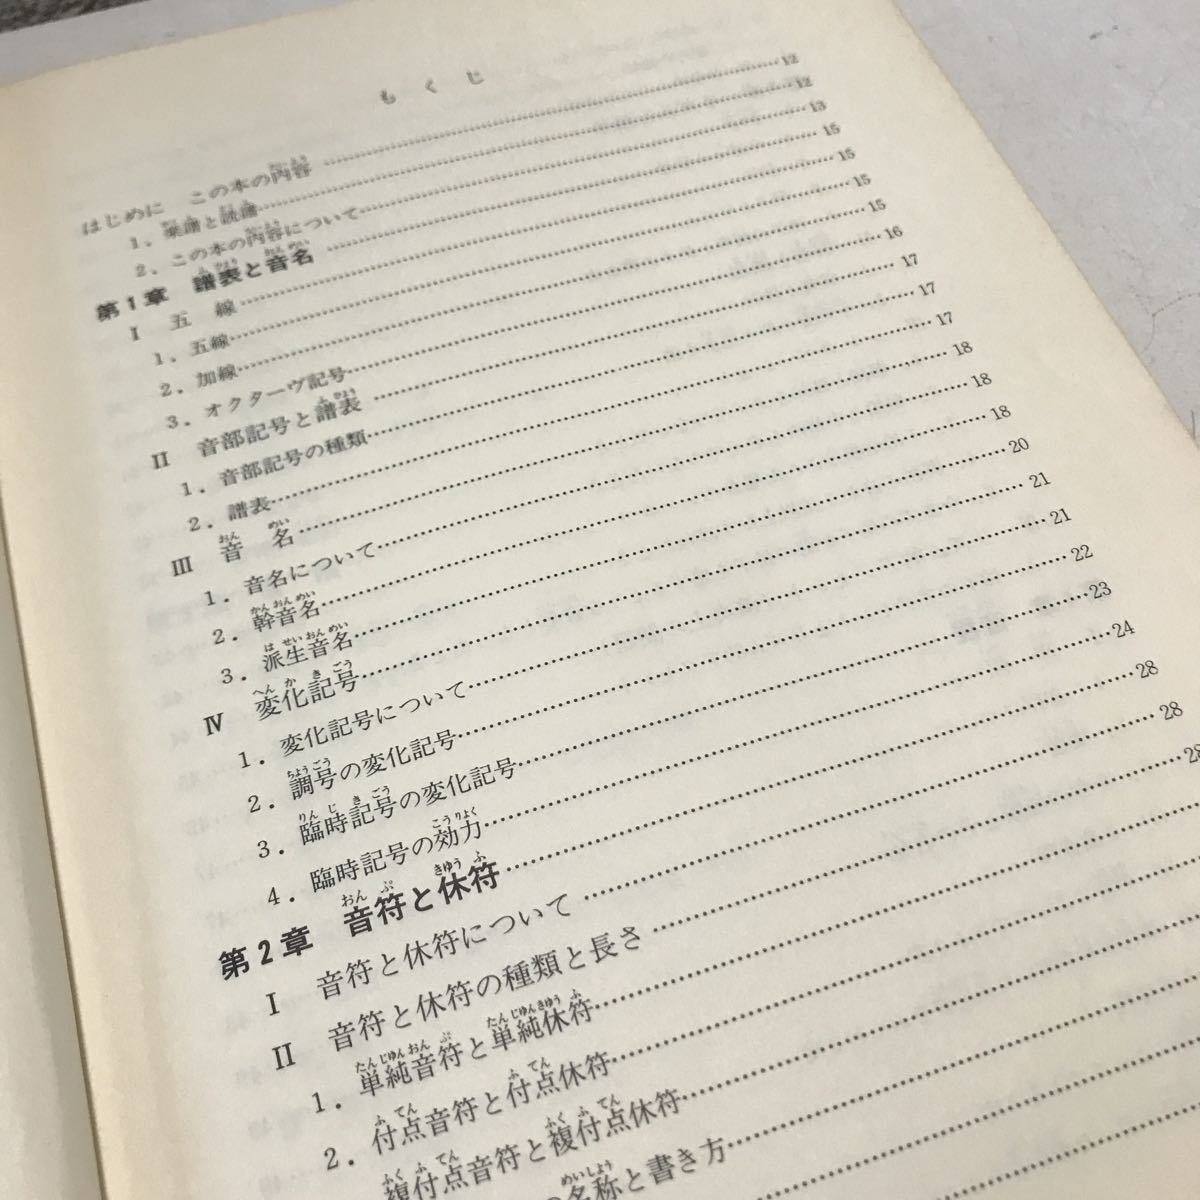 もくじ
はじめに この本の内容……12
1．楽譜と読譜……12
2．この本の内容について……13
第1章 譜表と音名……15
Ⅰ 五 線……15
1．五線……15
2．加線……15
3．オクターヴ記号……16
Ⅱ 音部記号と譜表……17
1．音部記号の種類……17
2．譜表……17
Ⅲ 音 名……18
1．音名について……18
2．幹音名……18
3．派生音名……20
Ⅳ 変化記号……21
1．変化記号について……21
2．調号の変化記号……22
3．臨時記号の変化記号……23
4．臨時記号の効力……24
第2章 音符と休符……28
Ⅰ 音符と休符について……28
Ⅱ 音符と休符の種類と長さ……28
1．単純音符と単純休符……
2．付点音符と付点休符……
複付点音符と複付点休符……
の名称と書き方……